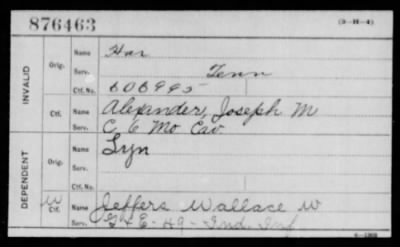 876463 (3-H-4)
INVALID
Orig. Name Har
Serv. Tenn
Ctf. No. 606995
Ctf. Name Alexander, Joseph M
Serv. C, 6 Mo Cav
DEPENDENT
Orig. Name Lyn
Serv.
Ctf. No.
W Ctf. Name Jeffers Wallace W
Serv. G & E - 49 - Ind Inf
6-1302